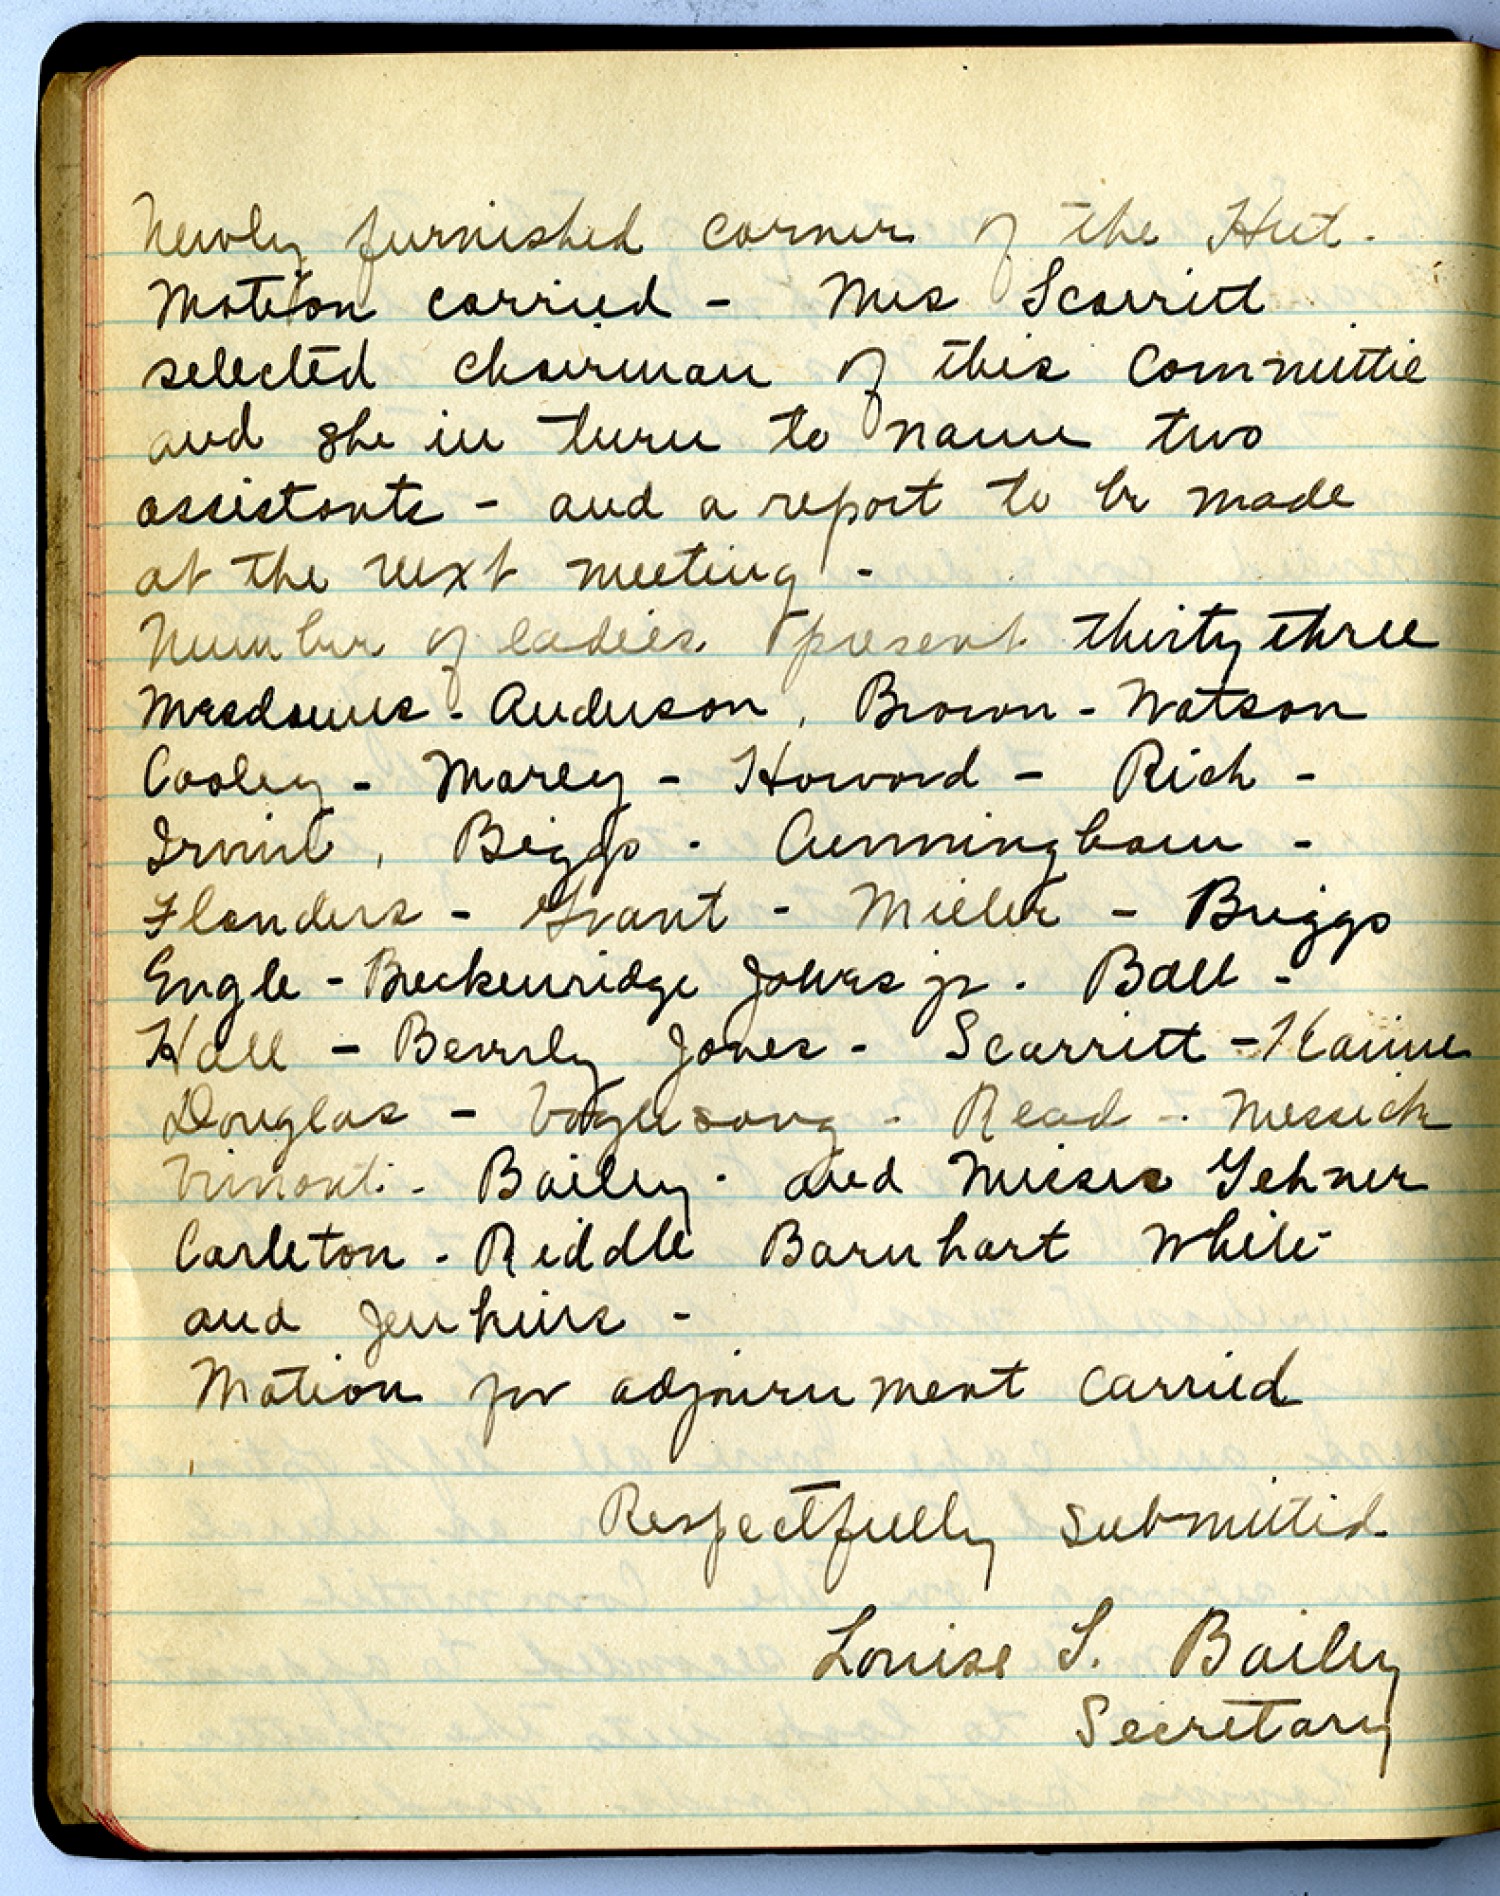 Newly furnished corner of the Hut.
Motion carried - Mrs Scarritt
selected chairman of this Committee
and she in turn to name two
assistants - and a report to be made
at the next meeting -
Number of ladies present thirty three
Mesdames - Anderson, Brown - Watson
Cooley - Marley - Howard - Rich -
Irvine, Biggs - Cunningham -
Flanders - Grant - Miller - Briggs
Engle - Breckenridge Jones jr. Ball -
Hall - Beverly Jones - Scarritt - Kaime
Douglas - Voglesong - Read - Messick
Vimont - Bailey - and Misses Gehner
Carleton - Riddle Barnhart White
and Jenkins -
Motion for adjournment carried
Respectfully submitted
Louise S. Bailey
Secretary